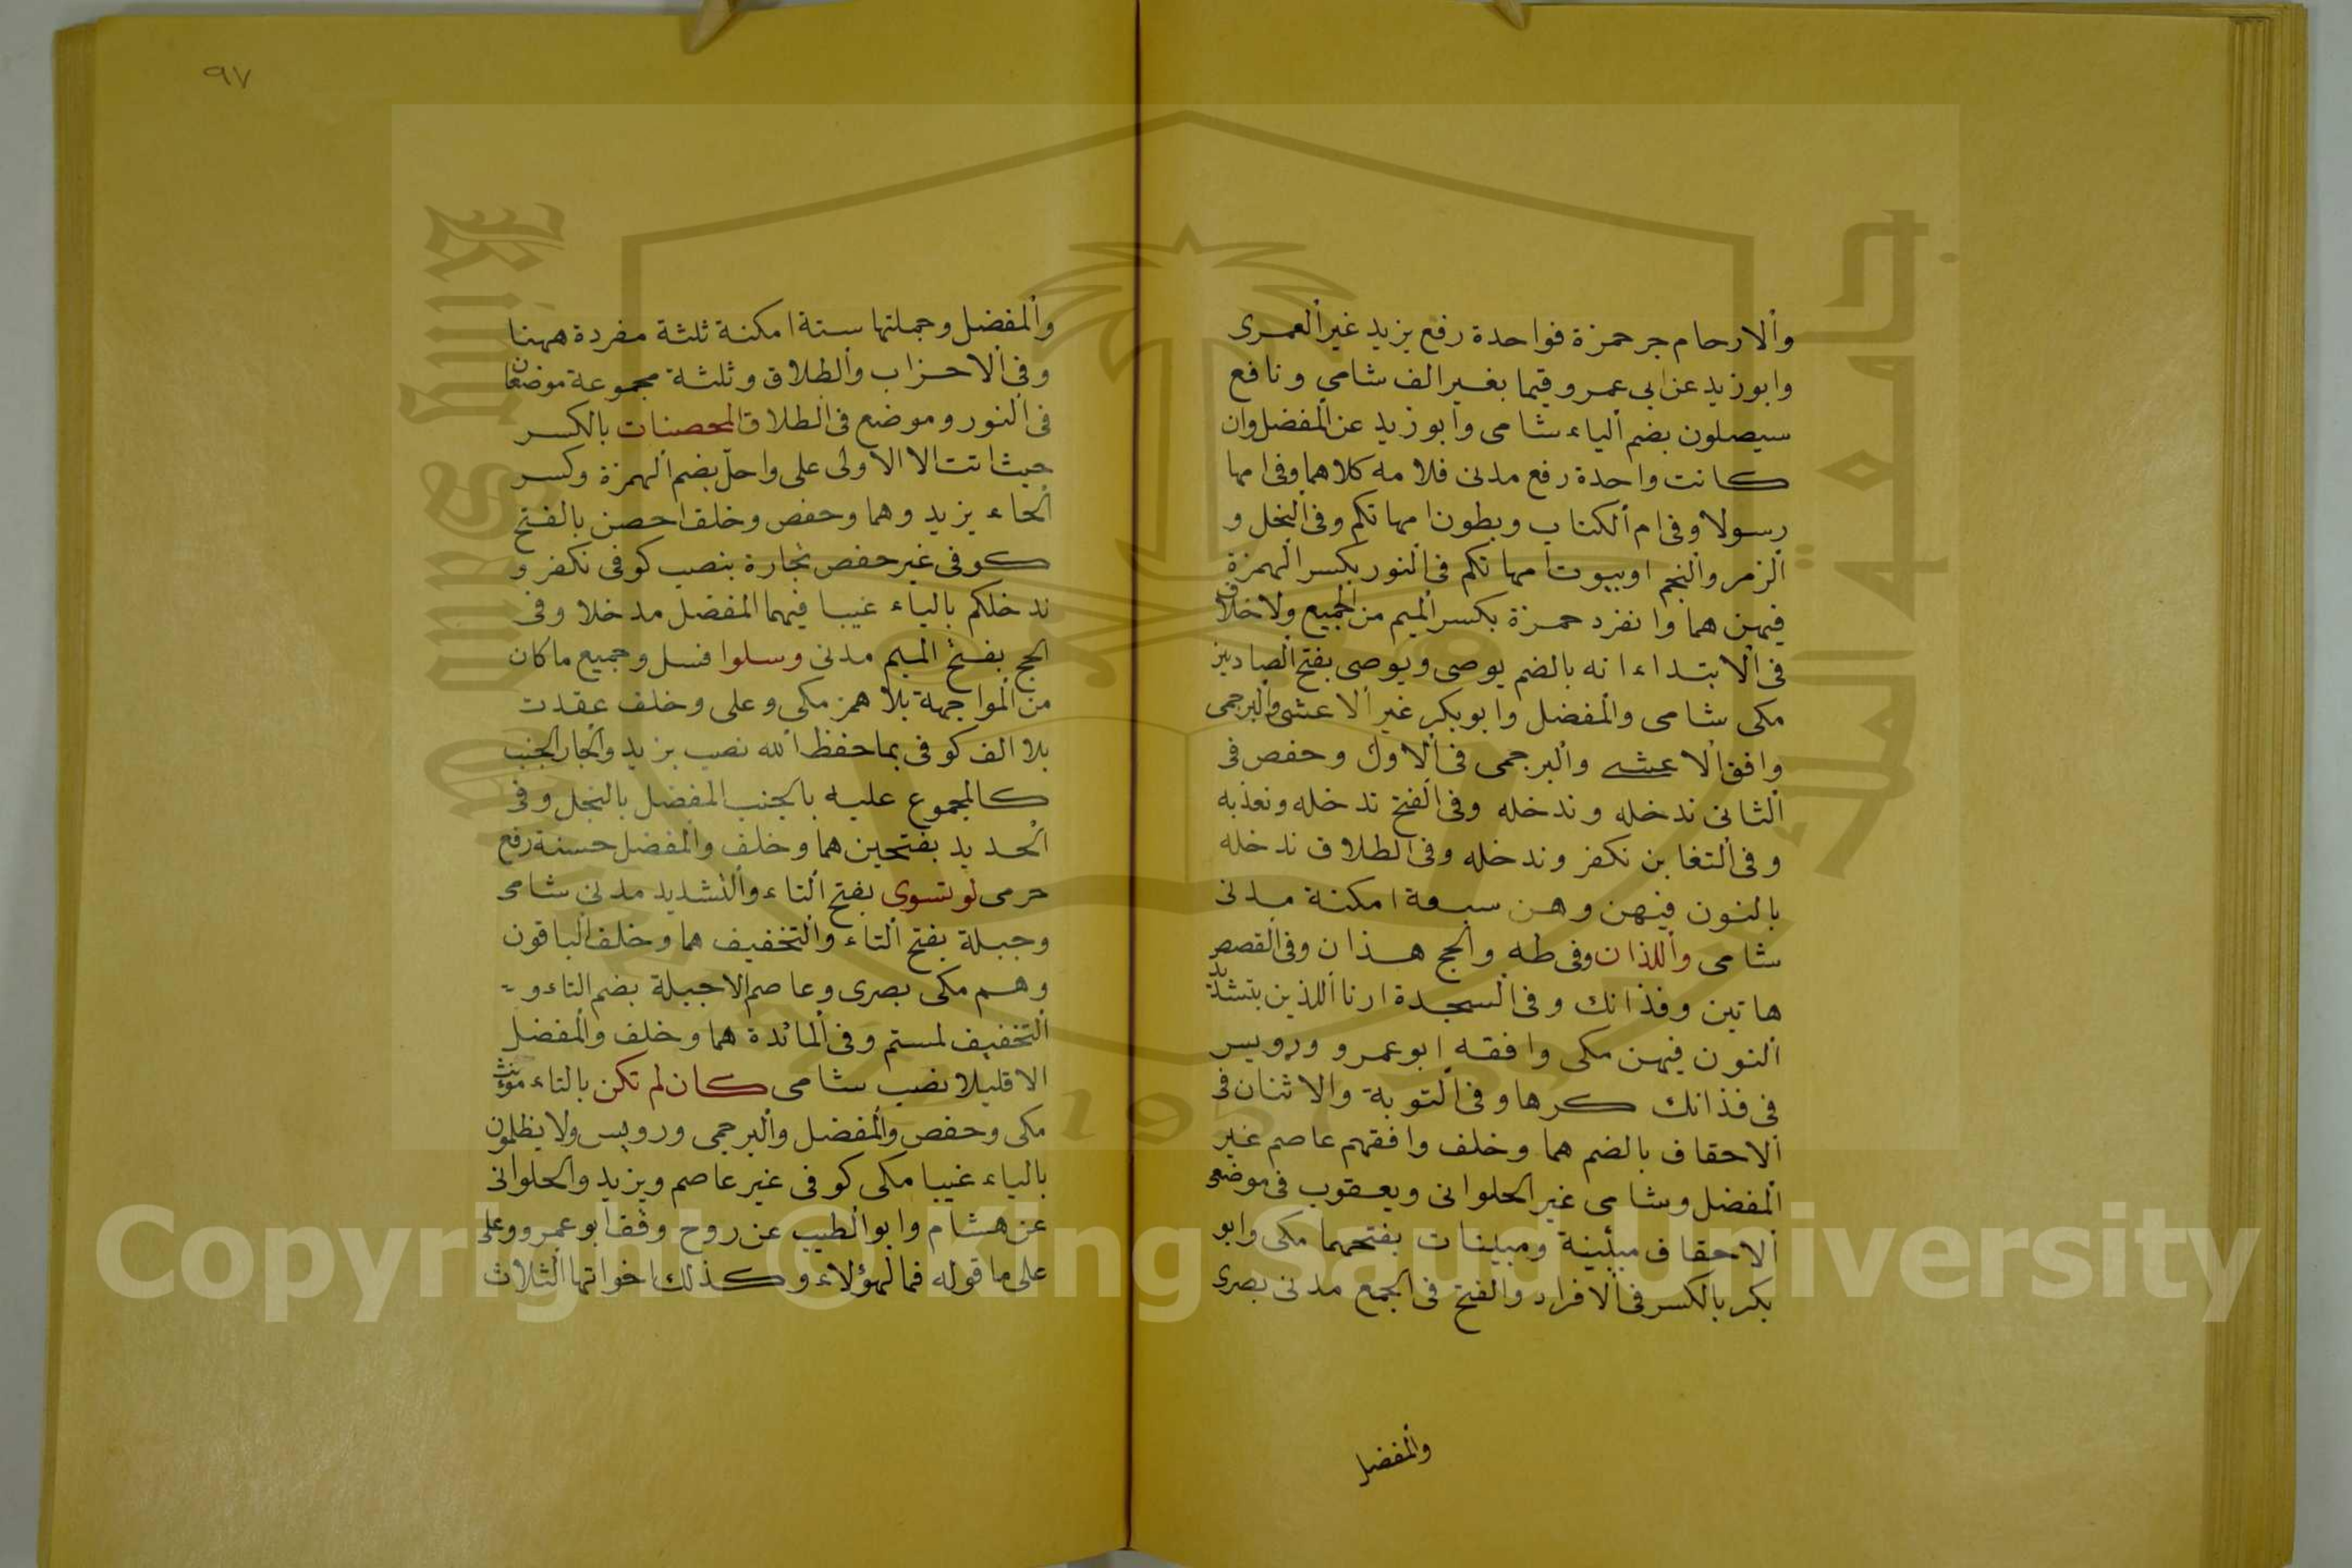 والارحام جر حمزة فواحدة رفع يزيد غير العمرى
وابو زيد عن ابي عمرو قيما بغير الف شامي ونافع
سيصلون بضم الياء شامى وابو زيد عن المفضل وان
كانت واحدة رفع مدنى فلامه كلاهما وفى امها
رسولا وفى ام الكتاب وبطون امهاتكم وفى النحل و
الزمر والنجم او بيوت امهاتكم فى النور بكسر الهمزة
فيهن هما وانفرد حمزة بكسر الميم من الجميع ولا خلاف
فى الابتداء انه بالضم يوصى ويوصى بفتح الصادين
مكى شامى والمفضل وابو بكر غير الاعشى والبرجمى
وافق الاعشى والبرجمى فى الاول وحفص فى
الثانى ندخله وندخله وفى الفتح ندخله ونعذبه
وفى التغابن نكفر وندخله وفى الطلاق ندخله
بالنون فيهن وهن سبعة امكنة مدنى
شامى واللذان وفى طه والحج هذان وفى القصص
هاتين وفذانك وفى السجدة ارنا اللذين بتشديد
النون فيهن مكى وافقه ابو عمرو ورويس
فى فذانك كرها وفى التوبة والاثنان فى
الاحقاف بالضم هما وخلف وافقهم عاصم غير
المفضل وشامى غير الحلوانى ويعقوب فى موضعى
الاحقاف مبينة ومبينات بفتحهما مكى وابو
بكر بالكسر فى الافراد والفتح فى الجمع مدنى بصرى
والمفضل
٩٧
والمفضل وجملتها ستة امكنة ثلثة مفردة ههنا
وفى الاحزاب والطلاق وثلثة مجموعة موضعان
فى النور وموضع فى الطلاق المحصنات بالكسر
حيث اتت الا الاولى على واحل بضم الهمزة وكسر
الحاء يزيد وهما وحفص وخلف احصن بالفتح
كوفى غير حفص تجارة بنصب كوفى نكفر و
ندخلكم بالياء غيبا فيهما المفضل مدخلا وفى
الحج بفتح الميم مدنى وسلوا فسل وجميع ما كان
من المواجهة بلا همز مكى وعلى وخلف عقدت
بلا الف كوفى بما حفظ الله نصب يزيد والجار الجنب
كالمجموع عليه بالجنب المفضل بالبخل وفى
الحديد بفتحين هما وخلف والمفضل حسنة رفع
حرمى لو تسوى بفتح التاء والتشديد مدنى شامى
وجبلة بفتح التاء والتخفيف هما وخلف الباقون
وهم مكى بصرى وعاصم الا جبلة بضم التاء و
التخفيف لمستم وفى المائدة هما وخلف والمفضل
الا قليلا نصب شامى كان لم تكن بالتاء مونث
مكى وحفص والمفضل والبرجمى ورويس ولا يظلمون
بالياء غيبا مكى كوفى غير عاصم ويزيد والحلوانى
عن هشام وابو الطيب عن روح وقف ابو عمرو وعلى
على ما قوله فمال هؤلاء وكذلك اخواتها الثلاث
Copyright © King Saud University
1957